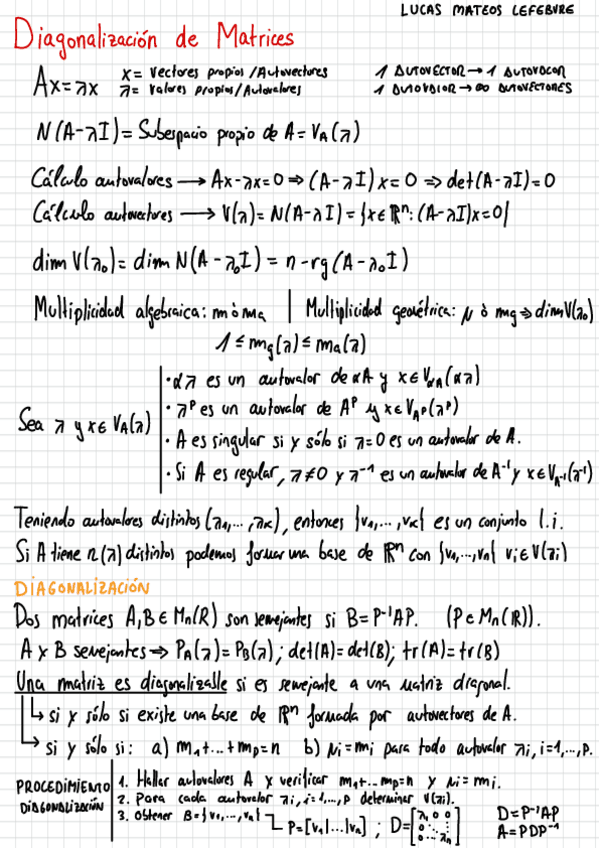 LUCAS MATEOS LEFEBVRE
Diagonalización de Matrices
Ax=λx
x= Vectores propios/Autovectores
λ= Valores propios/Autovalores
1 AUTOVECTOR → 1 AUTOVALOR
1 AUTOVALOR → ∞ AUTOVECTORES
N(A-λI) = Subespacio propio de A = V_A(λ)
Cálculo autovalores → Ax-λx=0 ⇒ (A-λI)x=0 ⇒ det(A-λI)=0
Cálculo autovectores → V(λ) = N(A-λI) = {x∈ℝⁿ: (A-λI)x=0}
dim V(λ₀) = dim N(A-λ₀I) = n-rg(A-λ₀I)
Multiplicidad algebraica: m ò ma | Multiplicidad geométrica: μ ò mg ⇒ dim V(λ₀)
1 ≤ mg(λ) ≤ ma(λ)
Sea λ y x∈V_A(λ)
· αλ es un autovalor de αA y x∈V_αA(αλ)
· λᵖ es un autovalor de Aᵖ y x∈V_Aᵖ(λᵖ)
· A es singular si y sólo si λ=0 es un autovalor de A.
· Si A es regular, λ≠0 y λ⁻¹ es un autovalor de A⁻¹ y x∈V_A⁻¹(λ⁻¹)
Teniendo autovalores distintos (λ₁,...,λκ), entonces {v₁,...,vκ} es un conjunto l.i.
Si A tiene n(λ) distintos podemos formar una base de ℝⁿ con {v₁,...,vn} vi∈V(λi)
DIAGONALIZACIÓN
Dos matrices A,B∈Mn(R) son semejantes si B=P⁻¹AP. (P∈Mn(ℝ)).
A y B semejantes ⇒ P_A(λ)=P_B(λ); det(A)=det(B); tr(A)=tr(B)
Una matriz es diagonalizable si es semejante a una matriz diagonal.
↳ si y sólo si existe una base de ℝⁿ formada por autovectores de A.
↳ si y sólo si: a) m₁+...+mp=n b) μi=mi para todo autovalor λi, i=1,...,p.
PROCEDIMIENTO
DIAGONALIZACIÓN
1. Hallar autovalores A y verificar m₁+...mp=n y μi=mi.
2. Para cada autovalor λi, i=1,...,p determinar V(λi).
3. Obtener B={v₁,...,vn} ↳ P=[v₁|...|vn] ; D=[λ₁ 0 0
0 ⋱ ⋮
0 ... λn]
D=P⁻¹AP
A=PDP⁻¹